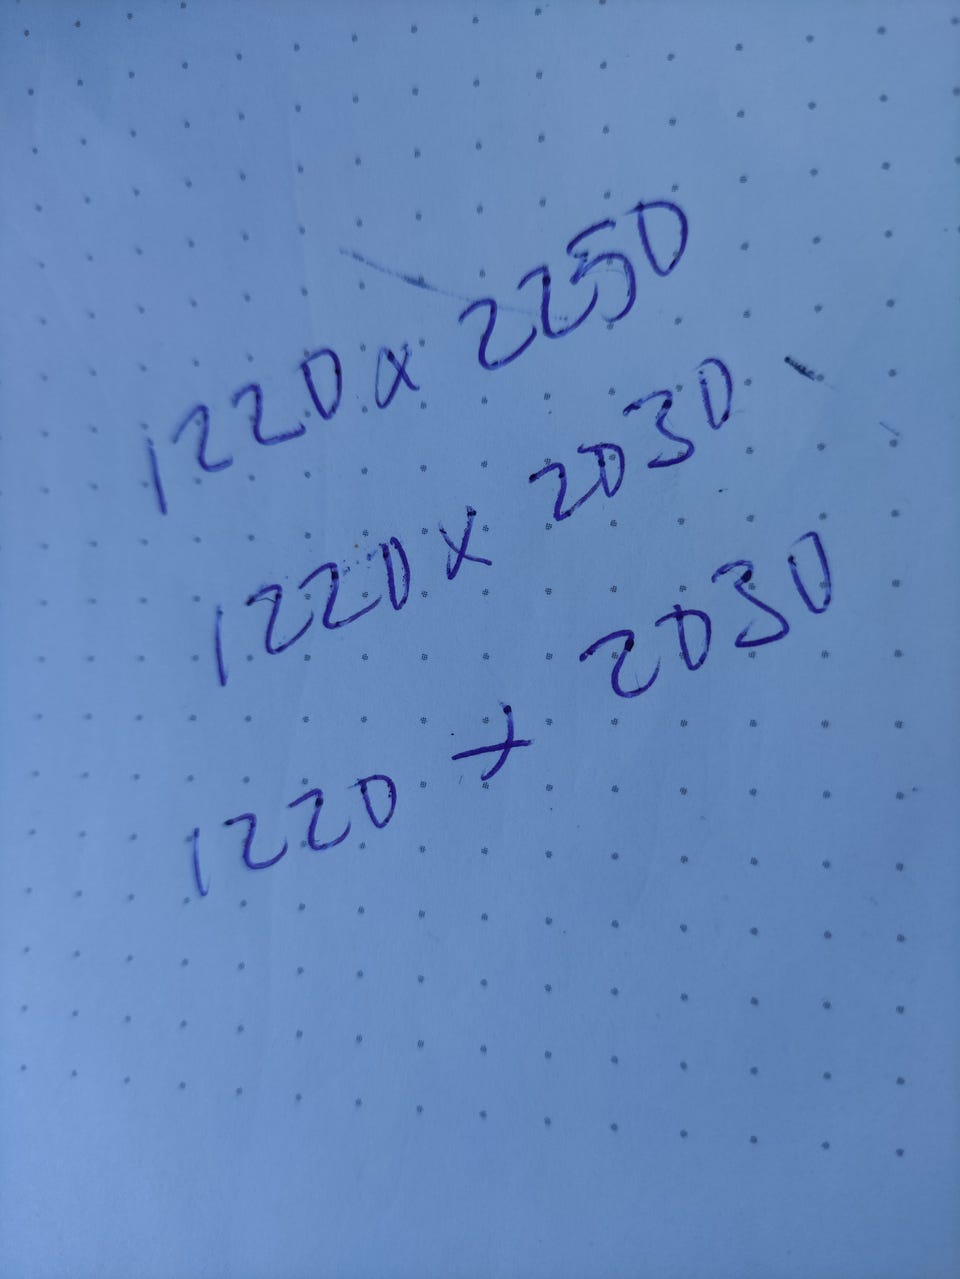 1220 x 2250
1220 x 2030
1220 x 2030